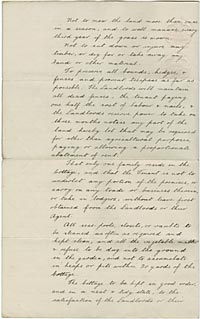 Not to mow the land more than once
in a season, and to well manure every
third year if the grass is mown.
Not to cut down or injure any
timber, or dig for or take away any
sand or other material.
To preserve all bounds, hedges, &
fences and prevent trespass as far as
possible. The Landlords will maintain
all dead fences, the tenant paying
one half the cost of labour & nails, &
the Landlords reserve power to take on
three months notice any part of the
land hereby let that may be required
for other than agricultural purposes,
paying or allowing a proportionate
abatement of rent.
That only one family reside in the
Cottage, and that the Tenant is not to
underlet any portion of the premises, or
carry on any trade or business therein
or take in lodgers, without leave first
obtained from the Landlords or their
Agent.
All cess-pools, closets, or vaults to
be cleaned as often as required and
kept clean, and all the vegetable matter
& refuse to be dug into the ground
in the garden, and not to accumulate
in heaps or pits within 20 yards of the
Cottage.
The Cottage to be kept in good order
and in a neat & tidy state, to the
satisfaction of the Landlords or their